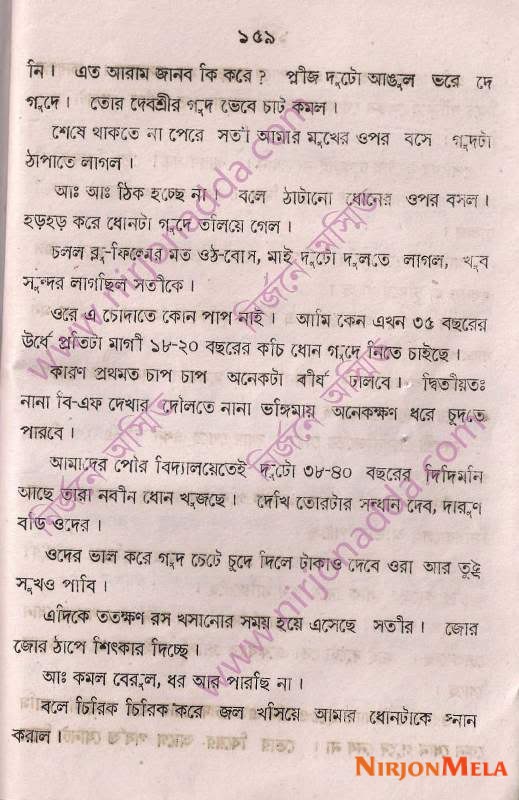 ১৫৯
নি। এত আরাম জানব কি করে? প্লীজ দুটো আঙুল ভরে দে
গুদে। তোর দেবশ্রীর গুদ ভেবে চাট কমল।
শেষে থাকতে না পেরে সতী আমার মুখের ওপর বসে গুদটা
ঠাপাতে লাগল।
আঃ আঃ ঠিক হচ্ছে না। বলে ঠাটানো ধোনের ওপর বসল।
হড়হড় করে ধোনটা গুদে তলিয়ে গেল।
চলল ব্লু-ফিল্মের মত ওঠ-বোস, মাই দুটো দুলতে লাগল, খুব
সুন্দর লাগছিল সতীকে।
ওরে এ চোদাতে কোন পাপ নাই। আমি কেন এখন ৩৫ বছরের
উর্ধে প্রতিটা মাগী ১৮-২০ বছরের কচি ধোন গুদে নিতে চাইছে।
কারণ প্রথমত চাপ চাপ অনেকটা বীর্য ঢালবে। দ্বিতীয়তঃ
নানা বি-এফ দেখার দৌলতে নানা ভঙ্গিমায় অনেকক্ষণ ধরে চুদতে
পারবে।
আমাদের পৌর বিদ্যালয়েতেই দুটো ৩৮-৪০ বছরের দিদিমনি
আছে তারা নবীন ধোন খুজছে। দেখি তোরটার সন্ধান দেব, দারুণ
বডি ওদের।
ওদের ভাল করে গুদ চেটে চুদে দিলে টাকাও দেবে ওরা আর তুই
সুখও পাবি।
এদিকে ততক্ষণ রস খসানোর সময় হয়ে এসেছে সতীর। জোর
জোর ঠাপে শিৎকার দিচ্ছে।
আঃ কমল বেরুল, ধর আর পারছি না।
বলে চিরিক চিরিক করে জল খসিয়ে আমার ধোনটাকে স্নান
করাল।
নির্জনে অস্মিত www.nirjonadda.com
নির্জনে অস্মিত www.nirjonadda.com
NIRJONMELA